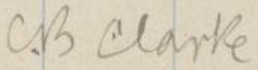 C.B Clarke